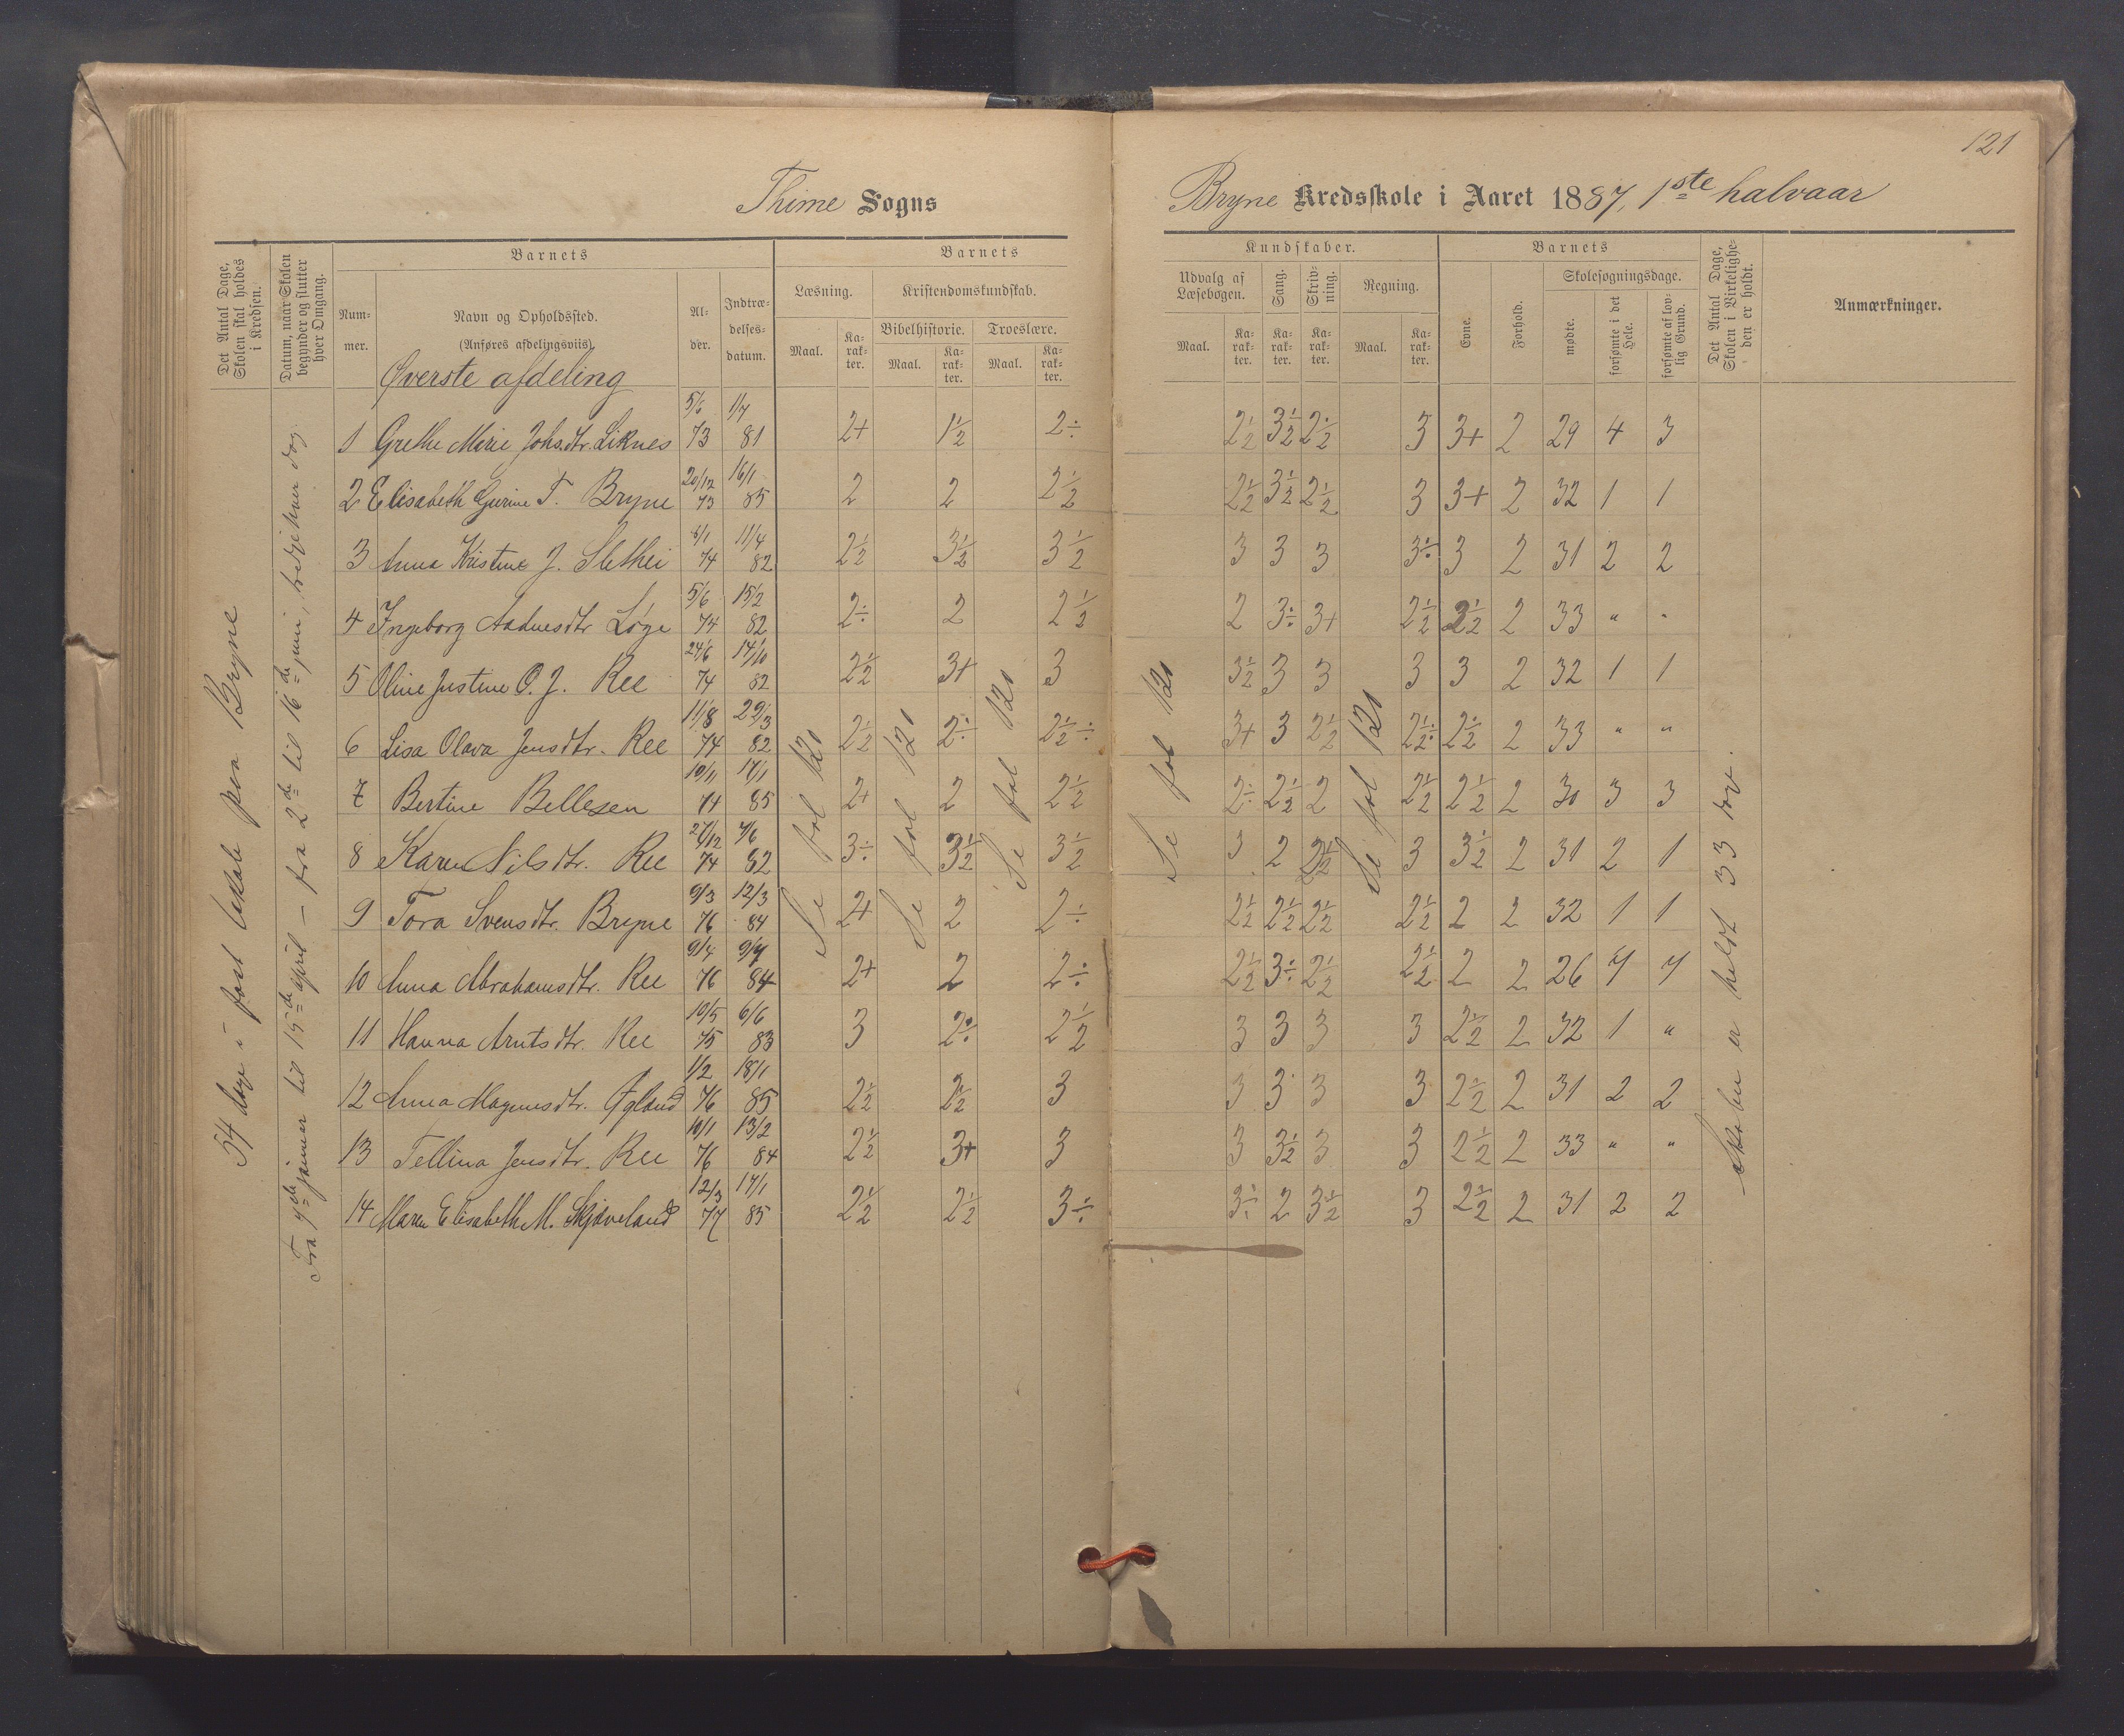 121
Thime Sogns
Bryne Kredsskole i Aaret 1887, 1ste halvaar
Det Antal Dage, Skolen skal holdes i Kredsen.
Datum, naar Skolen begynder og slutter hver Omgang.
Barnets
Nummer.
Navn og Opholdssted.
(Anføres afdelingsviis).
Øverste afdeling
Alder.
Indtrædelsesdatum.
Barnets
Læsning.
Kristendomskundskab.
Bibelhistorie.
Troeslære.
Maal.
Karakter.
Maal.
Karakter.
Maal.
Karakter.
Kundskaber.
Udvalg af Læsebogen.
Sang.
Skrivning.
Regning.
Maal.
Karakter.
Karakter.
Karakter.
Maal.
Karakter.
Barnets
Evne.
Forhold.
Skolesøgningsdage.
mødte.
forsømte i det Hele.
forsømte af lovlig Grund.
Det Antal Dage, Skolen i Virkeligheden er holdt.
Anmærkninger.
54 dage i fast lokale paa Bryne
Fra 7de januar til 15de april – fra 2de til 16de juni, tredje hver dag.
1 Grethe Marie Johs.dtr. Liknes 5/6 73 1/7 81 2+ 1½ 2÷ 2½ 3½ 2½ 3 3+ 2 29 4 3
2 Elisabeth Gurine T. Bryne 20/12 73 16/1 85 2 2 2½ 2½ 3½ 2½ 3 3+ 2 32 1 1
3 Anna Kristine J. Slethei 6/1 74 11/4 82 2½ 3½ 3½ 3 3 3 3÷ 3 2 31 2 2
4 Ingeborg Aadnesdtr Løge 5/6 74 15/2 82 2÷ 2 2½ 2 3÷ 3+ 2½ 2½ 2 33 " "
5 Oline Justine O. J. Ree 24/6 74 14/10 82 2½ 3+ 3 3½ 3 3 3 3 2 32 1 1
6 Lisa Olava Jensdtr. Ree 11/8 74 22/3 82 2½ 2÷ 2½÷ 3+ 3 2½ 2½÷ 2½ 2 33 " "
7 Bertine Bellesen 10/11 74 17/1 85 2+ 2 2½ 2÷ 2½ 2 2½ 2½ 2 30 3 3
8 Karen Nilsdtr. Ree 27/12 74 7/6 82 3÷ 3½ 3½ 3 2 2½ 3 3½ 2 31 2 1
9 Tora Svensdtr. Bryne 9/3 76 12/3 84 2+ 2 2÷ 2½ 2½ 2½ 2½ 2 2 32 1 1
10 Anna Abrahamsdtr. Ree 9/4 76 9/7 84 2+ 2 2÷ 2½ 3÷ 2½ 2½ 2 2 26 7 7
11 Hanna Arntsdtr. Ree 10/5 75 6/6 83 3 2÷ 2½ 3 3 3 3 2½ 2 32 1 "
12 Anna Magnusdtr. Øgland 1/2 76 18/1 85 2½ 2½ 3 3 3 3 3 2½ 2 31 2 2
13 Tellina Jensdtr. Ree 10/1 76 13/2 84 2½ 3+ 3 3 3½ 3 3 2½ 2 33 " "
14 Maren Elisabeth M. Skjæveland 12/3 77 17/1 85 2½ 2½ 3÷ 3÷ 2 3½ 3 2½ 2 31 2 2
Se fol 120
Se fol 120
Se fol 120
Se fol 120
Se fol 120
Skolen er holdt 33 dage.